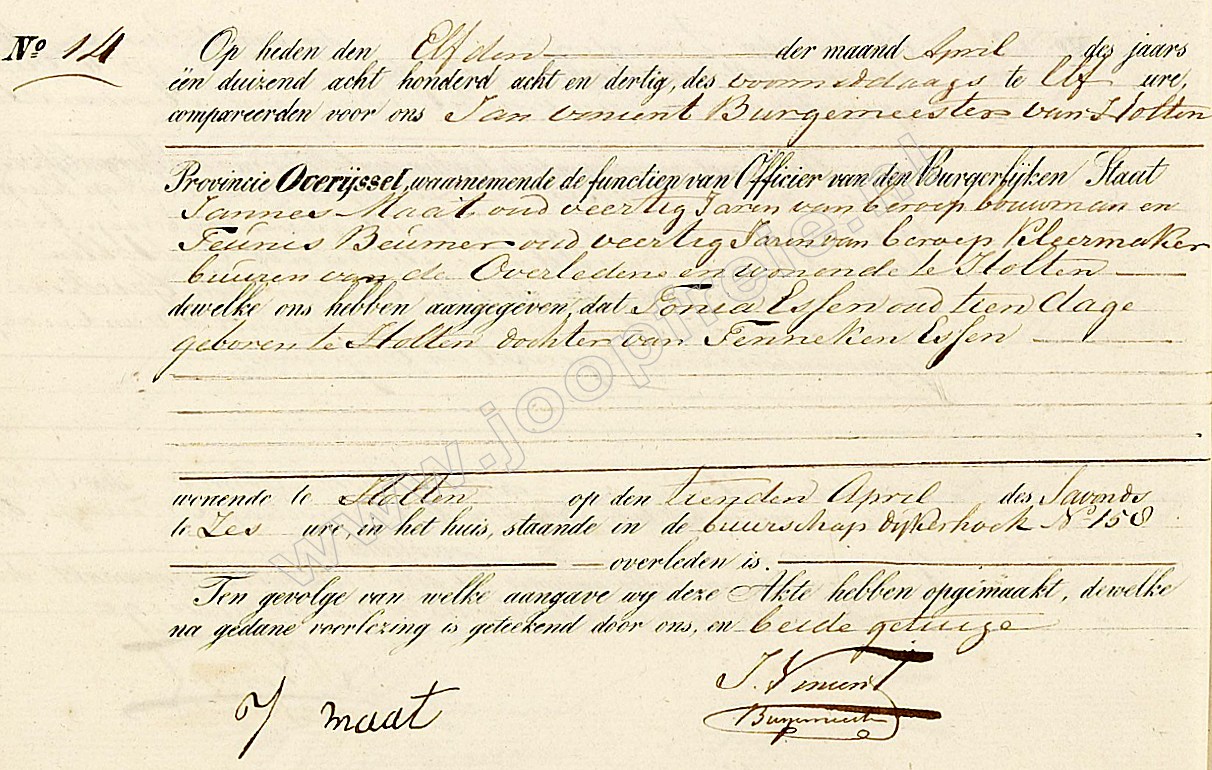 No 14
Op heden den Elfden der maand April des jaars
één duizend acht honderd acht en dertig, des voormiddaags te Elf ure,
compareerden voor ons Jan vincent Burgemeester van Holten
Provincie Overijssel, waarnemende de functien van Officier van den Burgerlijken Staat
Jannes Maat oud veertig Jaren van beroep bouwman en
Teunis Beúmer oud veertig Jaren van beroep Kleermaker
buúren van de Overledene en wonende te Holten
dewelke ons hebben aangegeven, dat Tonia Essen oud tien dage
geboren te Holten dochter van Fenneken Essen
wonende te Holten op den tienden April des Savonds
te Zes ure, in het huis, staande in de buurschap dijkerhoek No 158
overleden is.
Ten gevolge van welke aangave wy deze Akte hebben opgemaakt, dewelke
na gedane voorlezing is geteekend door ons, en beide getuige
J. Vincent
Burgemeester
J maat
www.joopifreie.nl